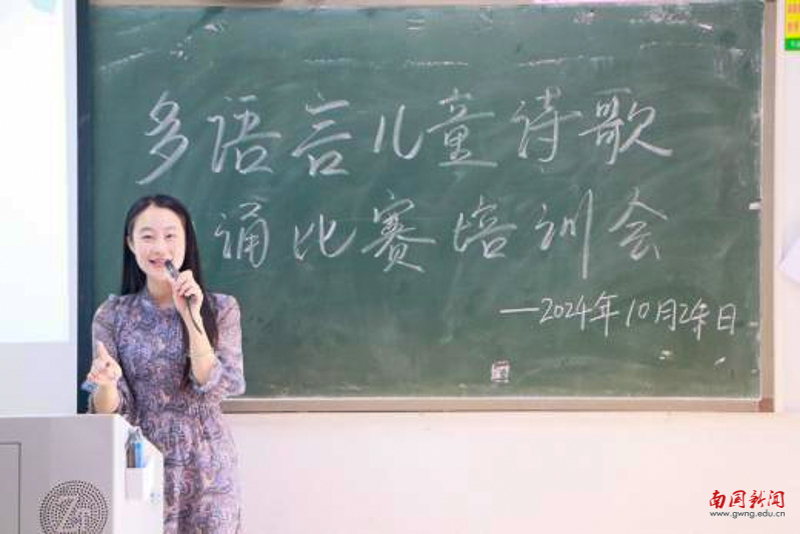 多语言儿童诗歌
诵比赛培训会
—2024年10月24日
南国新闻
www.gwng.edu.cn